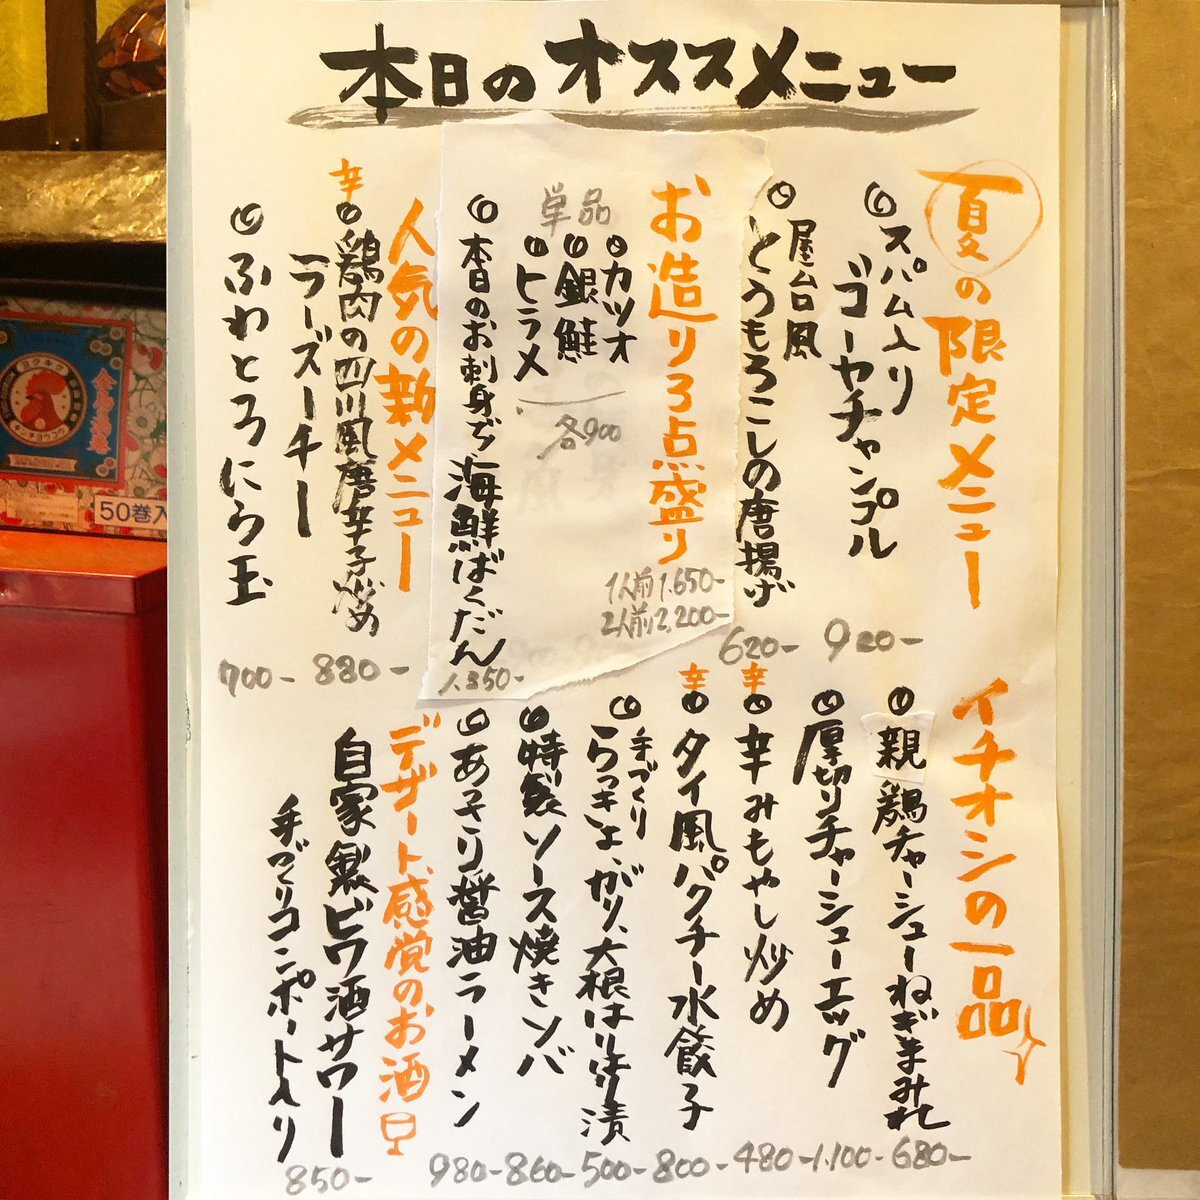 本日のオススメニュー
夏の限定メニュー
スパム入り
ゴーヤチャンプル
920-
屋台風
とうもろこしの唐揚げ
620-
お造り3点盛り
1人前1.650-
2人前2,200-
単品
カツオ
銀鮭
ヒラメ
各900
本日のお刺身で海鮮ばくだん
1.350-
人気の新メニュー
辛
鶏肉の四川風唐辛子炒め
ラーズーチー
880-
ふわとろにら玉
700-
イチオシの一品
親鶏チャーシューねぎまみれ
680-
厚切りチャーシューエッグ
1.100-
辛
辛みもやし炒め
480-
辛
タイ風パクチー水餃子
800-
手づくり
らっきょ、がり、大根はりはり漬
500-
特製ソース焼きソバ
860-
あっさり醤油ラーメン
980-
デザート感覚のお酒
自家製ビワ酒サワー
手づくりコンポート入り
850-
50巻入